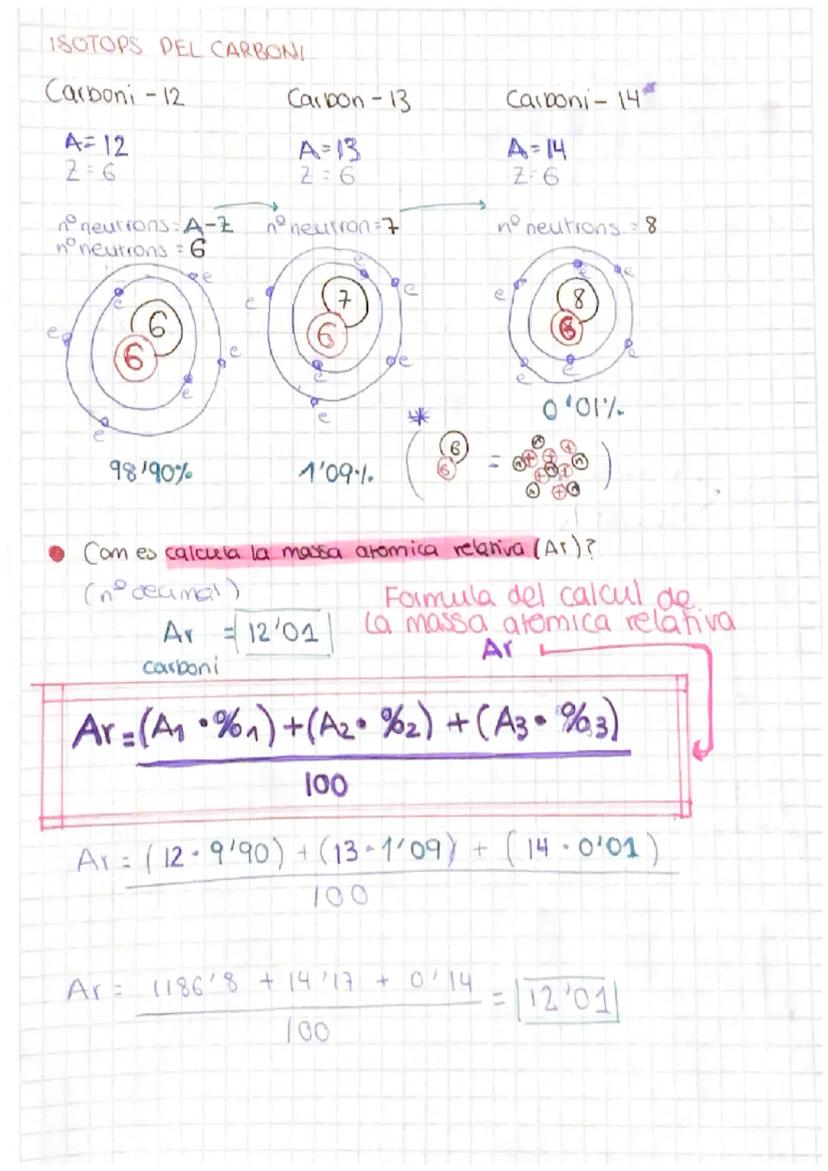 ISOTOPS DEL CARBONI
Carboni - 12 Carbon - 13 Carboni - 14*
A = 12 A = 13 A = 14
Z = 6 Z = 6 Z = 6
nº neutrons = A-Z nº neutron = 7 nº neutrons = 8
nº neutrons = 6
e e e e e e 6 6
e e e e e e 7 6
e e e e e e 8 6
0'01%
98'90% 1'09% * ( 6 6 = n + n + + n + n + n + n )
• Com es calcula la massa atomica relativa (Ar)?
(nº decimal)
Formula del calcul de
la massa atomica relativa
Ar
Ar = 12'01
carboni
Ar = (A1 · %1) + (A2 · %2) + (A3 · %3)
100
Ar = (12 · 9'90) + (13 · 1'09) + (14 · 0'01)
100
Ar = 1186'8 + 14'17 + 0'14 = 12'01
100